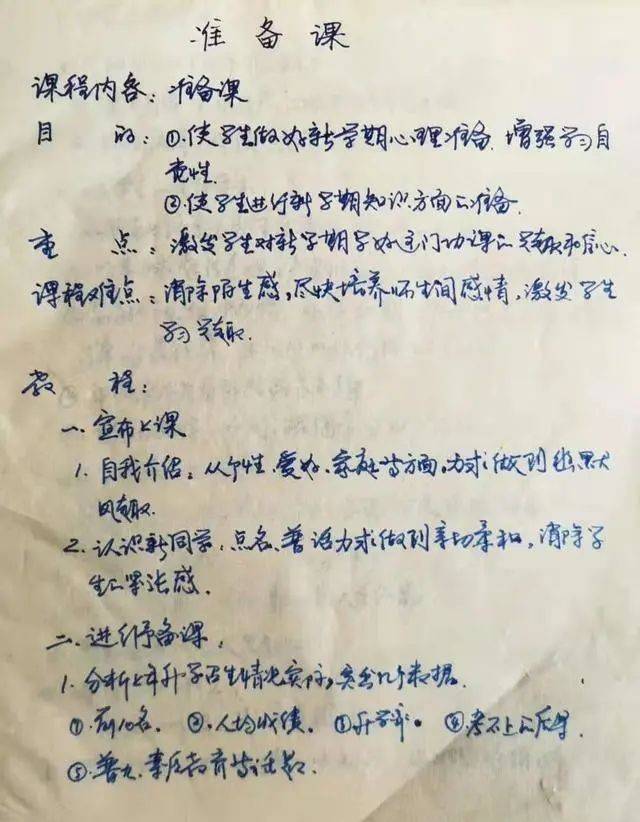 准备课
课程内容：准备课
目 的：①.使学生做好新学期心理准备.增强学习自
觉性.
②.使学生进行新学期知识方面的准备.
重 点：激发学生对新学期学好这门功课的兴趣和信心.
课程难点：消除陌生感，尽快培养师生间感情，激发学生
学习兴趣.
教 程：
一.宣布上课
1.自我介绍：从个性.爱好.家庭等方面，力求做到幽默
风趣.
2.认识新同学.点名.普话力求做到亲切柔和，消除学
生的紧张感.
二.进行予备课：
1.分析上年升学招生情况实际，突出几个数据.
①.前10名. ②.人均成绩. ③升学率. ④.考不上的后果.
⑤.普九.素质教育等话题.